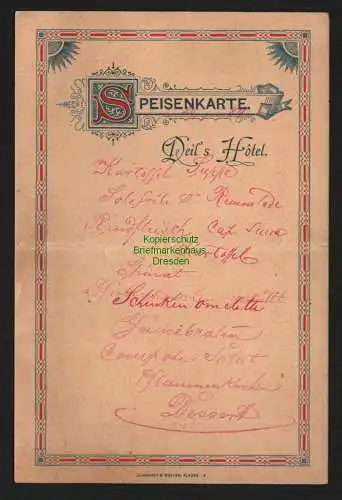 SPEISENKARTE.
Deil's Hôtel.
Kartoffel Suppe
Sole frite Sce Remoulade
Rindfleisch Cap. Sauce
Kartoffel
Spinat
Schinken Omelette
Gänsebraten
Compote Salat
Pflaumenkuchen
Dessert
Kopierschutz
Briefmarkenhaus
Dresden